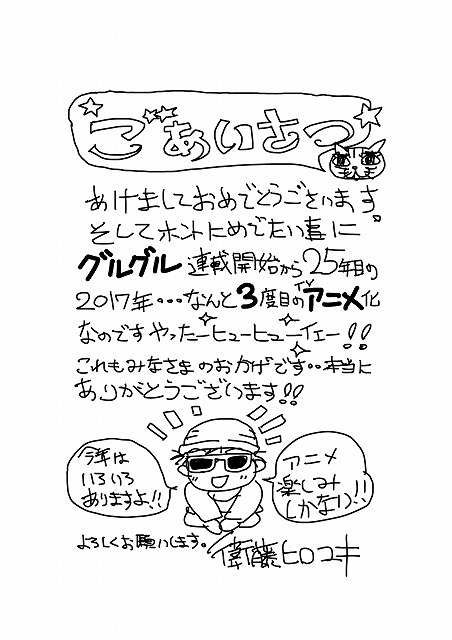 ごあいさつ
あけましておめでとうございます。
そしてホントにめでたい事に
グルグル連載開始から25年目の
2017年・・・なんと3度目のTVアニメ化
なのですやったーヒューヒューイエー!!
これもみなさまのおかげです・・本当に
ありがとうございます!!
今年は
いろいろ
ありますよ!!
アニメ
楽しみ
しかない!!
よろしくお願いします。
衛藤ヒロユキ